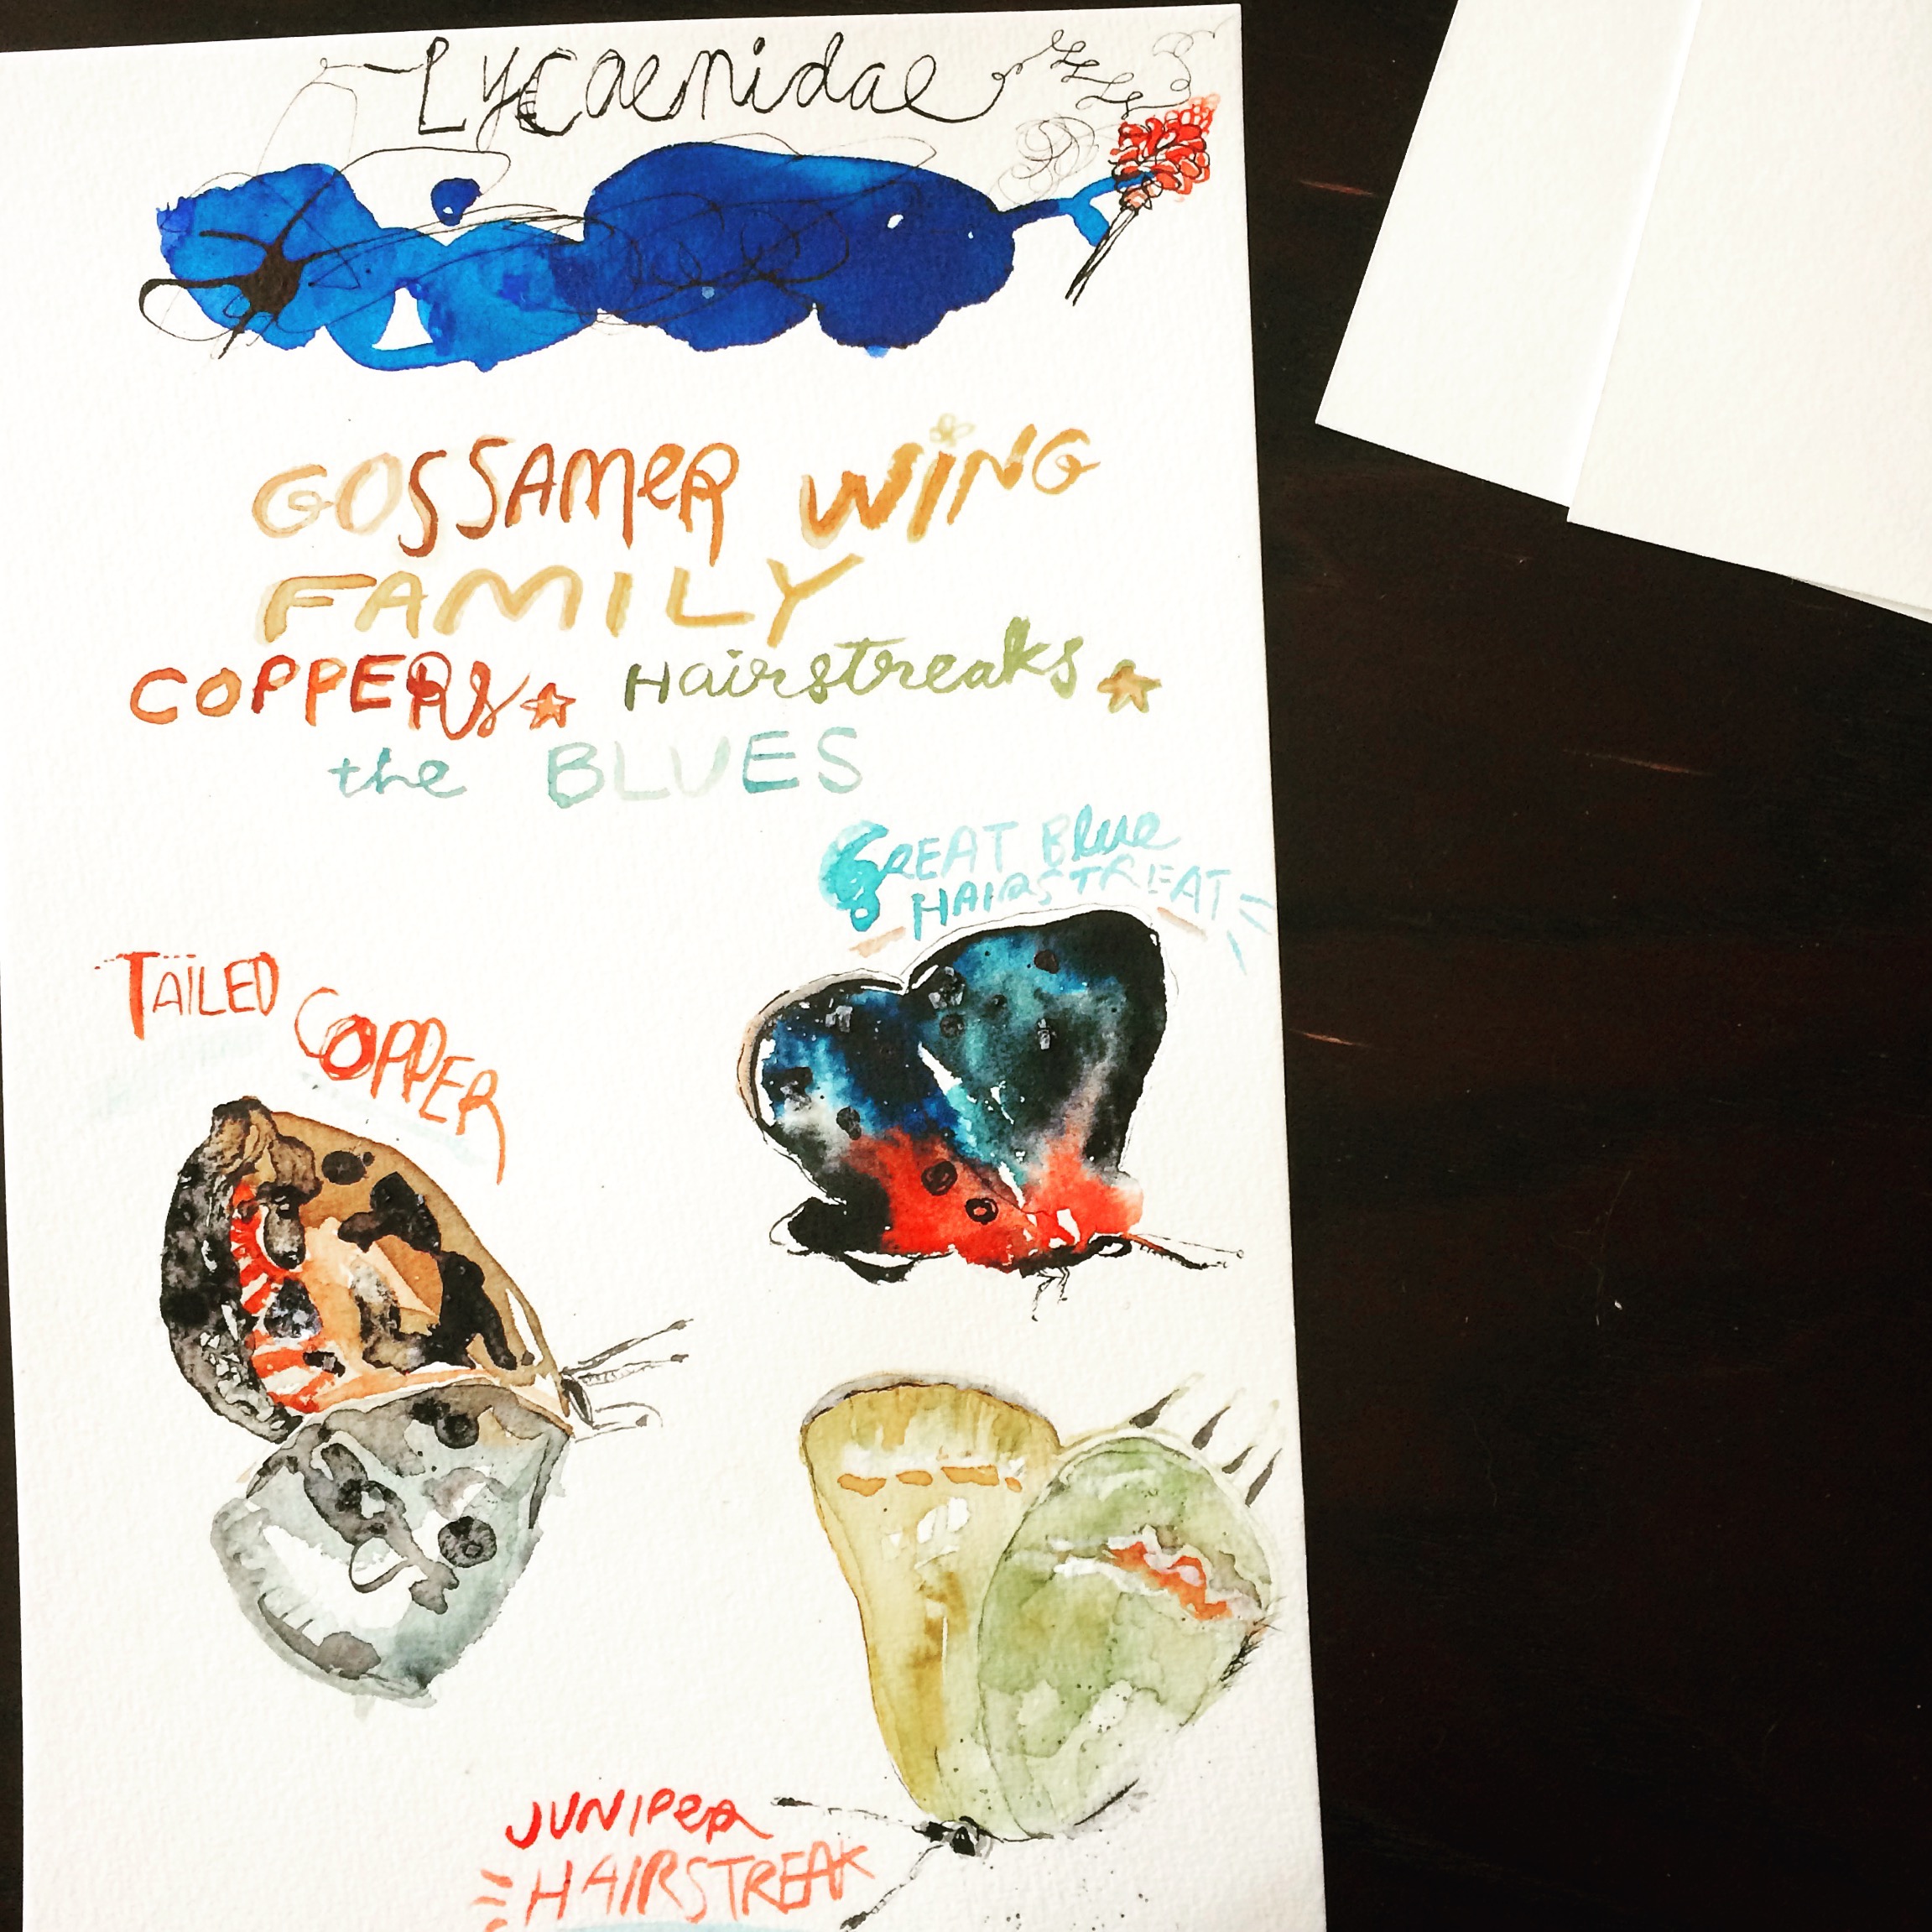 Lycaenidae
GOSSAMER WING
FAMILY
COPPERS Hairstreaks
the BLUES
GREAT Blue
HAIRSTREAT
TAILED
COPPER
JUNIPER
HAIRSTREAK